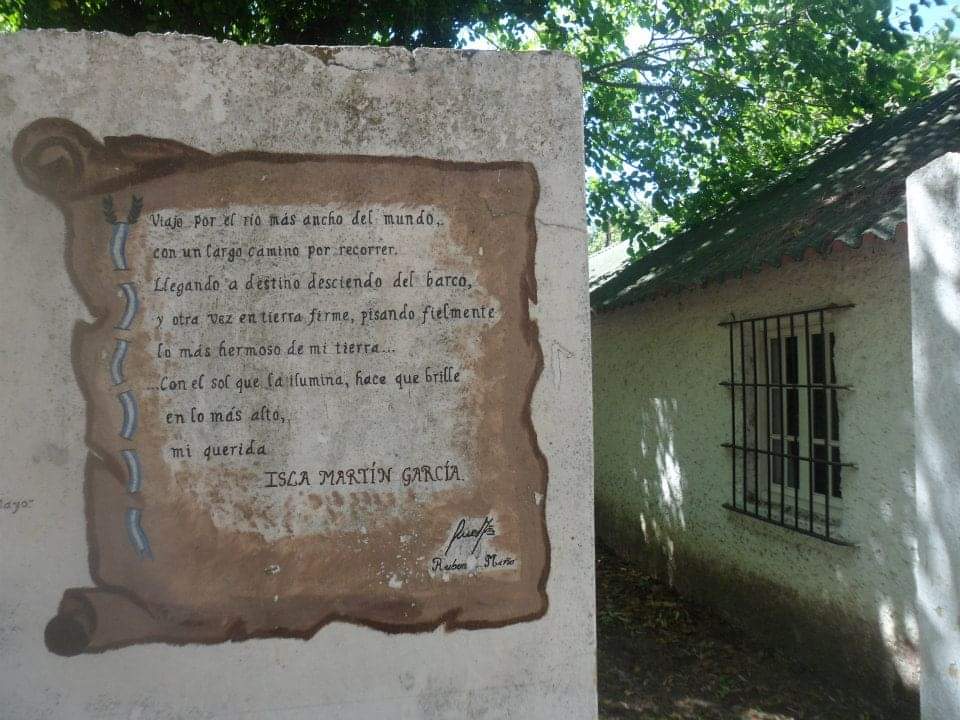 Viajo por el río más ancho del mundo,
con un largo camino por recorrer.
Llegando a destino desciendo del barco,
y otra vez en tierra firme, pisando fielmente
lo más hermoso de mi tierra...
...Con el sol que la ilumina, hace que brille
en lo más alto,
mi querida
ISLA MARTÍN GARCÍA.
Ruben